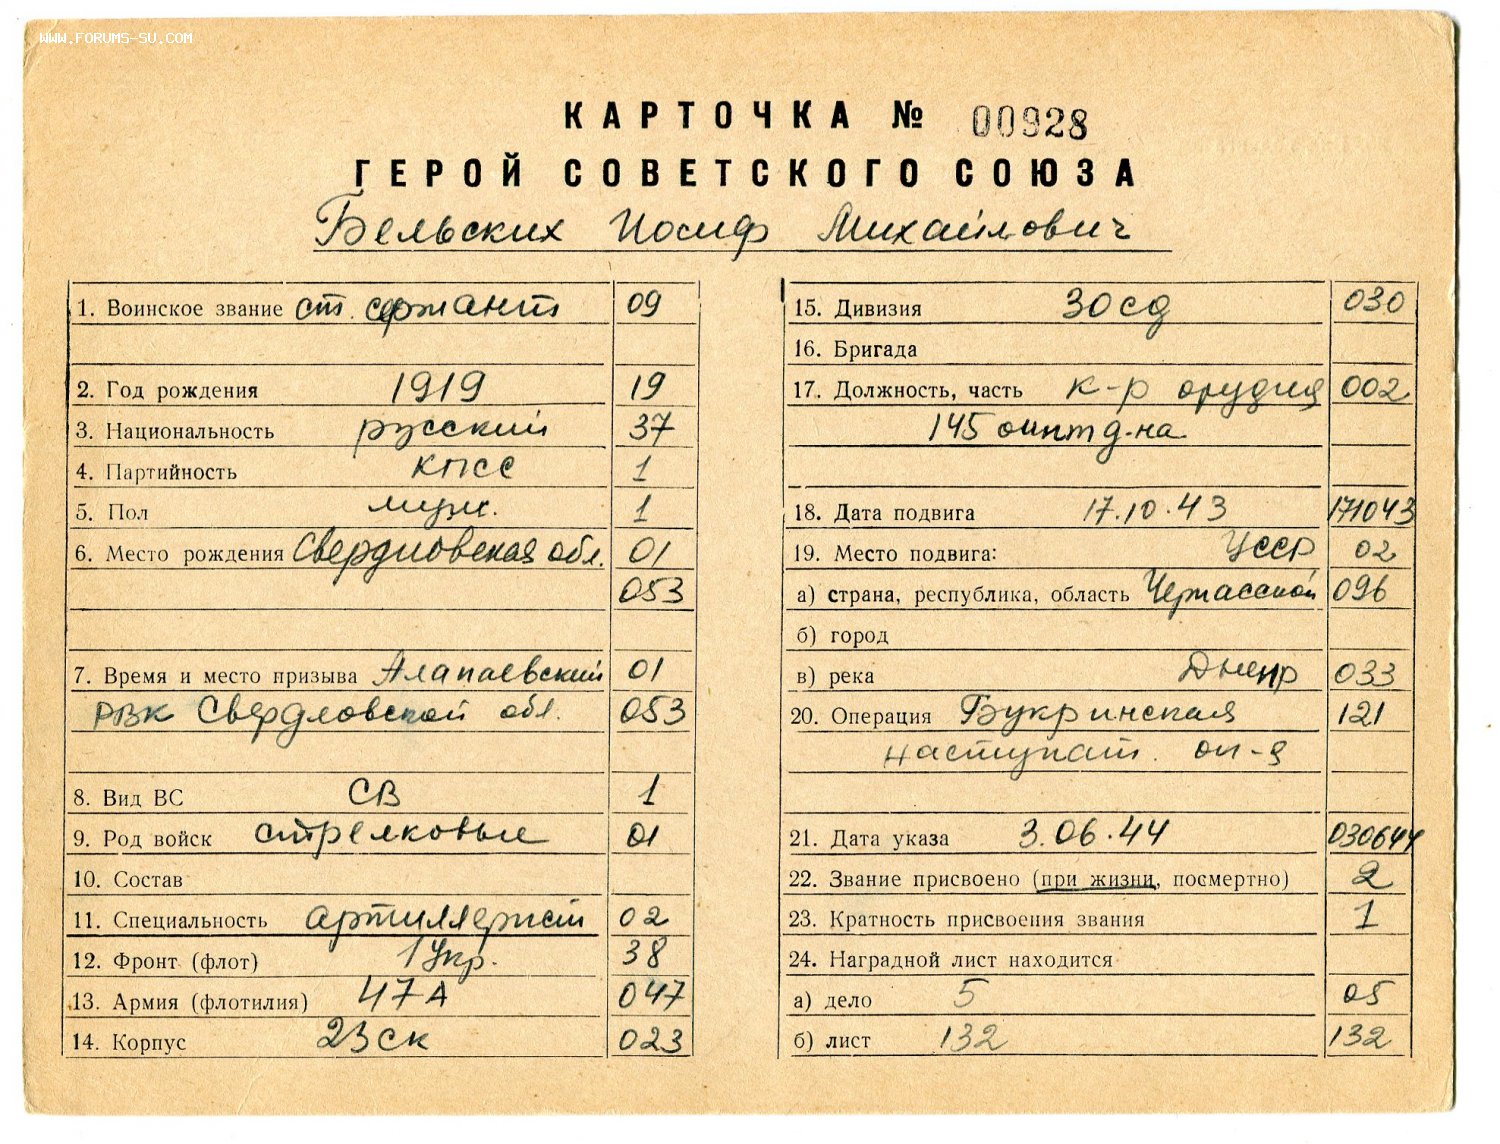 WWW.FORUMS-SU.COM
КАРТОЧКА № 00928
ГЕРОЙ СОВЕТСКОГО СОЮЗА
Бельских Иосиф Михайлович
1. Воинское звание ст. сержант 09
2. Год рождения 1919 19
3. Национальность русский 37
4. Партийность КПСС 1
5. Пол муж. 1
6. Место рождения Свердловская обл. 01
053
7. Время и место призыва Алапаевский 01
РВК Свердловской обл. 053
8. Вид ВС СВ 1
9. Род войск стрелковые 01
10. Состав
11. Специальность артиллерист 02
12. Фронт (флот) 1 Укр. 38
13. Армия (флотилия) 47 А 047
14. Корпус 23 ск 023
15. Дивизия 30 сд 030
16. Бригада
17. Должность, часть к-р орудия 002
145 оиптд-на
18. Дата подвига 17.10.43 171043
19. Место подвига: УССР 02
а) страна, республика, область Черкасской 096
б) город
в) река Днепр 033
20. Операция Букринская 121
наступат. оп-я
21. Дата указа 3.06.44 030644
22. Звание присвоено (при жизни, посмертно) 2
23. Кратность присвоения звания 1
24. Наградной лист находится
а) дело 5 05
б) лист 132 132